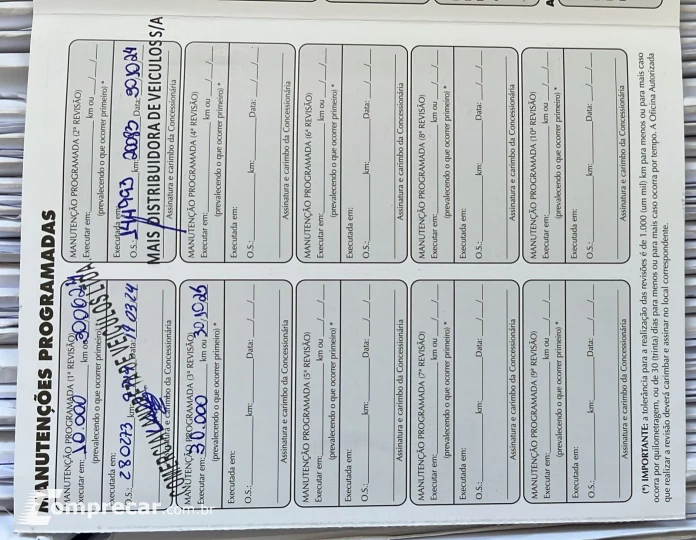 MANUTENÇÕES PROGRAMADAS
MANUTENÇÃO PROGRAMADA (1ª REVISÃO)
Executar em: 10.000 km ou 30/06/24
(prevalecendo o que ocorrer primeiro) *
O.S.: 280273 km: Data: 19/03/24
COMERCIAL DE VEICULOS LTDA
Assinatura e carimbo da Concessionária
MANUTENÇÃO PROGRAMADA (2ª REVISÃO)
Executar em: km ou / /
(prevalecendo o que ocorrer primeiro) *
Executada em:
O.S.: km: 20083 Data: 30/10/24
MAIS DISTRIBUIDORA DE VEICULOS S/A
Assinatura e carimbo da Concessionária
MANUTENÇÃO PROGRAMADA (3ª REVISÃO)
Executar em: 30.000 km ou 30/10/25
(prevalecendo o que ocorrer primeiro) *
Executada em:
O.S.: km: Data: / /
Assinatura e carimbo da Concessionária
MANUTENÇÃO PROGRAMADA (4ª REVISÃO)
Executar em: km ou / /
(prevalecendo o que ocorrer primeiro) *
Executada em:
O.S.: km: Data: / /
Assinatura e carimbo da Concessionária
MANUTENÇÃO PROGRAMADA (5ª REVISÃO)
Executar em: km ou / /
(prevalecendo o que ocorrer primeiro) *
Executada em:
O.S.: km: Data: / /
Assinatura e carimbo da Concessionária
MANUTENÇÃO PROGRAMADA (6ª REVISÃO)
Executar em: km ou / /
(prevalecendo o que ocorrer primeiro) *
Executada em:
O.S.: km: Data: / /
Assinatura e carimbo da Concessionária
MANUTENÇÃO PROGRAMADA (7ª REVISÃO)
Executar em: km ou / /
(prevalecendo o que ocorrer primeiro) *
Executada em:
O.S.: km: Data: / /
Assinatura e carimbo da Concessionária
MANUTENÇÃO PROGRAMADA (8ª REVISÃO)
Executar em: km ou / /
(prevalecendo o que ocorrer primeiro) *
Executada em:
O.S.: km: Data: / /
Assinatura e carimbo da Concessionária
MANUTENÇÃO PROGRAMADA (9ª REVISÃO)
Executar em: km ou / /
(prevalecendo o que ocorrer primeiro) *
Executada em:
O.S.: km: Data: / /
Assinatura e carimbo da Concessionária
MANUTENÇÃO PROGRAMADA (10ª REVISÃO)
Executar em: km ou / /
(prevalecendo o que ocorrer primeiro) *
Executada em:
O.S.: km: Data: / /
Assinatura e carimbo da Concessionária
(*) IMPORTANTE: a tolerância para a realização das revisões é de 1.000 (um mil) km para menos ou para mais caso
ocorra por quilometragem, ou de 30 (trinta) dias para menos ou para mais caso ocorra por tempo. A Oficina Autorizada
que realizar a revisão deverá carimbar e assinar no local correspondente.
comprecar.com.br